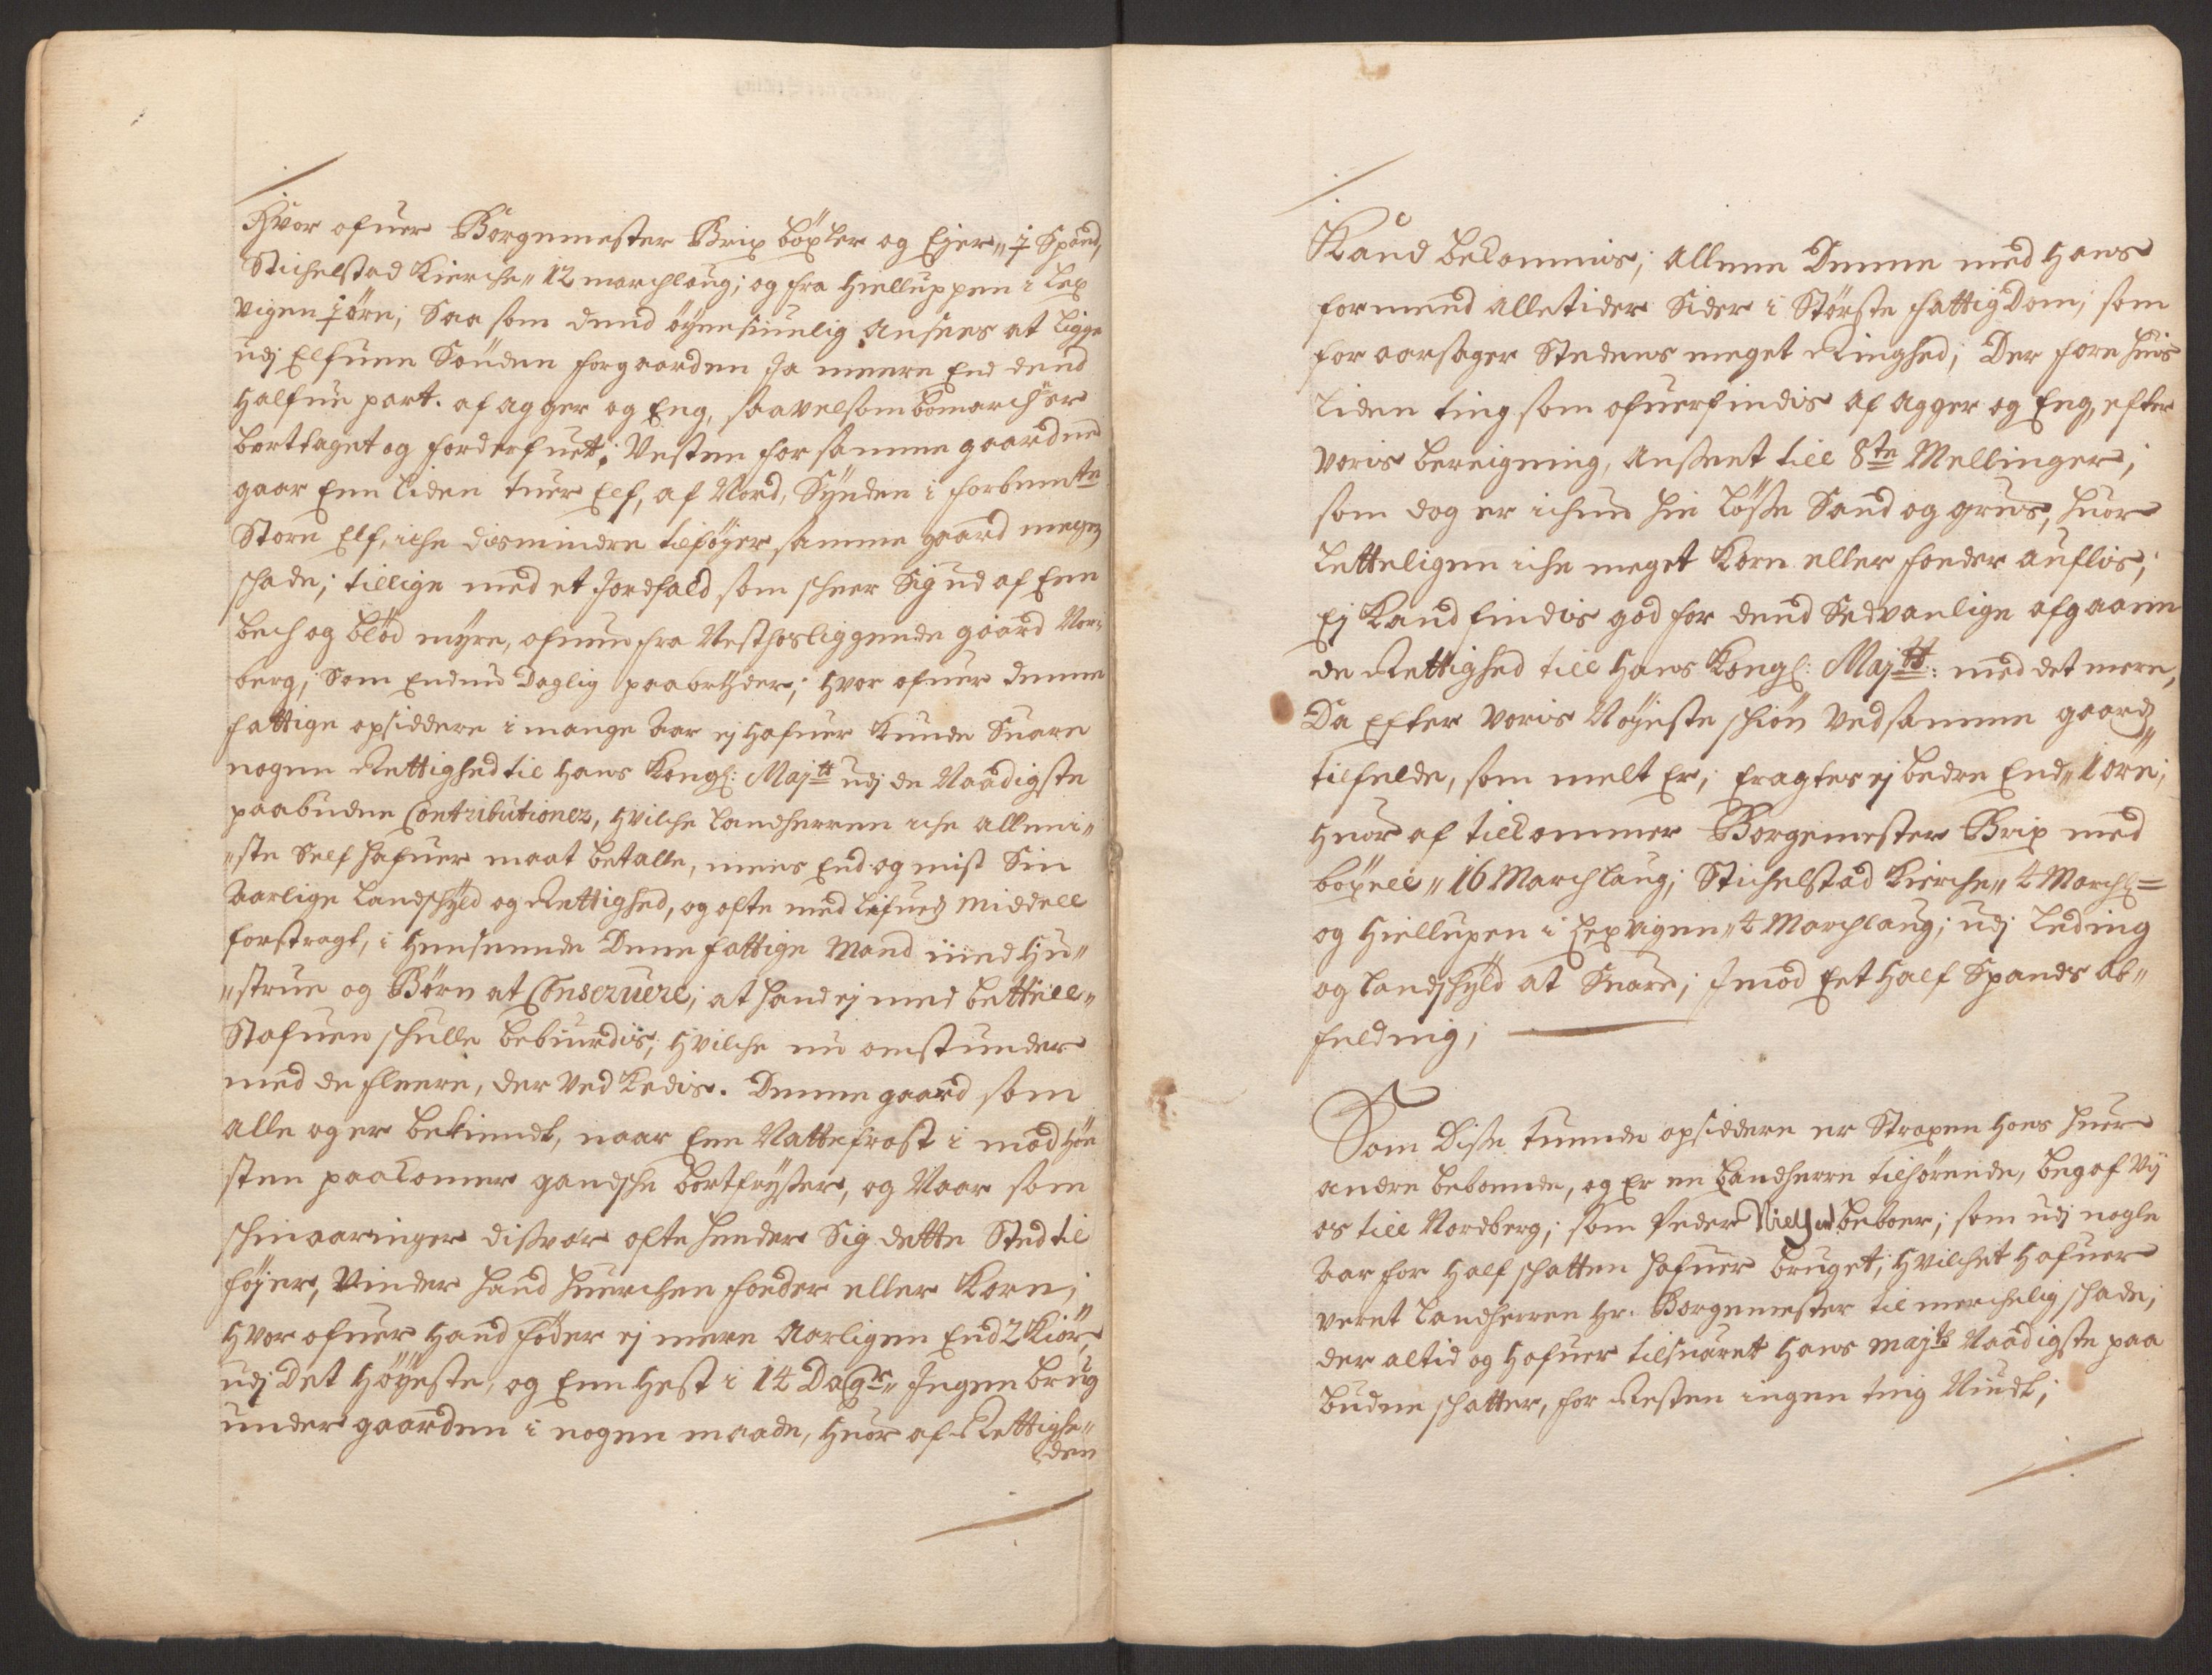 Hvor ofuer Borgemester Brix böxler og Ejer„ ½ Spand,
Stichelstad Kierche„ 12 marchlaug; og fra Hielluppen i Lex
vigen ½ øre; Saa som dend öyensiunlig Ansees at ligge
udj Elfuene Sönden for gaarden Ja meere End dend
Halfue part. af agger og Eng, saavelsom bomarch er
borttaget og forderfuet; Vesten for samme gaard ned
gaar Enn liden tuer Elf, af Nord, Synden i forbemte
Store Elf, iche dismindre tilföyer samme gaard megen
schade; tillige med et Jordfald som scheer Sig ud af Enn
bech og blöd myre, ofuen fra Vesthosliggende gaard Nor„
berg; Som Endnu Daglig paabryder; Hvor ofuer denne
fattige opsiddere i mange Aar ej Hafuer kunde Suare
nogen Rettighed til Hans Kongl: Majtt udj de Naadigste
paabudne Contributioner, Hvilche Landherren iche alleni„
„ste Self hafuer maat betalle, mens End og mist Sin
Aarlige Landschyld og Rettighed, og ofte med lifuedz middell
forstragt, i Henseende Denne fattige Mand med Hu„
„strue og Börn at Conseruere; at hand ej med bettell„
Stafuen schulle bebyrdis; Hvilche nu omstunder
med de fleere, der ved kedis. Denne gaard som
alle og er bekiendt, naar Enn Nattefrost i mod Hö„
sten paakomer gandsche bortfryser, og Naar som
schinaaringer dissvær ofte hender Sig dette Sted til
föyer, Vinder hand huerchen foeder eller Korn;
Hvor ofuer Hand föder ej mere Aarligen End 2 Kiör,
udj Det Höyeste, og Enn Hest i 14 Dagr„ Ingen brug
under gaarden i nogen maade, Huor af Rettighe„
den
Kand bekommis; Allene Denne med Hans
formend alletider Sider i Störste fattigDom; som
for aarsager Stedens meget Ringhed; Der fore huis
liden ting som ofuerfindis af Agger og Eng, efter
voris bereigning, Anseet till 8te Mellinger;
som dog er ichun hin löse Sand og grus, huor
letteligen iche meget Korn eller foeder aufles;
Ej kand findis god for dend Sedvanlige afgaaen
de Rettighed till Hans Kongl: Majtt: med det mere,
Da Efter voris Nöyeste schiön ved samme gaardz
tilfelde, som melt Er; fragtes ej bedre End„ 1 öre;
Huor af tilkommer Borgemester Brix med
böxell„ 16 Marchlaug; Stichelstad Kierche„ 4 Marchl=
og Hiellupen i Lexvigen„ 4 Marchlaug; udj leding
og landschyld at Suare; Imod Eet Half Spands af„
felding;
Som Disse tuende opsiddere er Straxen Hoes huer
andre beboende, og Er en Landherre tilhörende, begaf Vy
os till Nordberg; som Peder Nielsen beboer; som udj nogle
Aar for Half schatten hafuer bruget; Hvilchet Hafuer
veret Landherren Hr. Borgemester til merchelig schade;
der altid og Hafuer tilsuaret Hans Majts Naadigste paa
budne schatter, for Resten ingen ting Niudt;